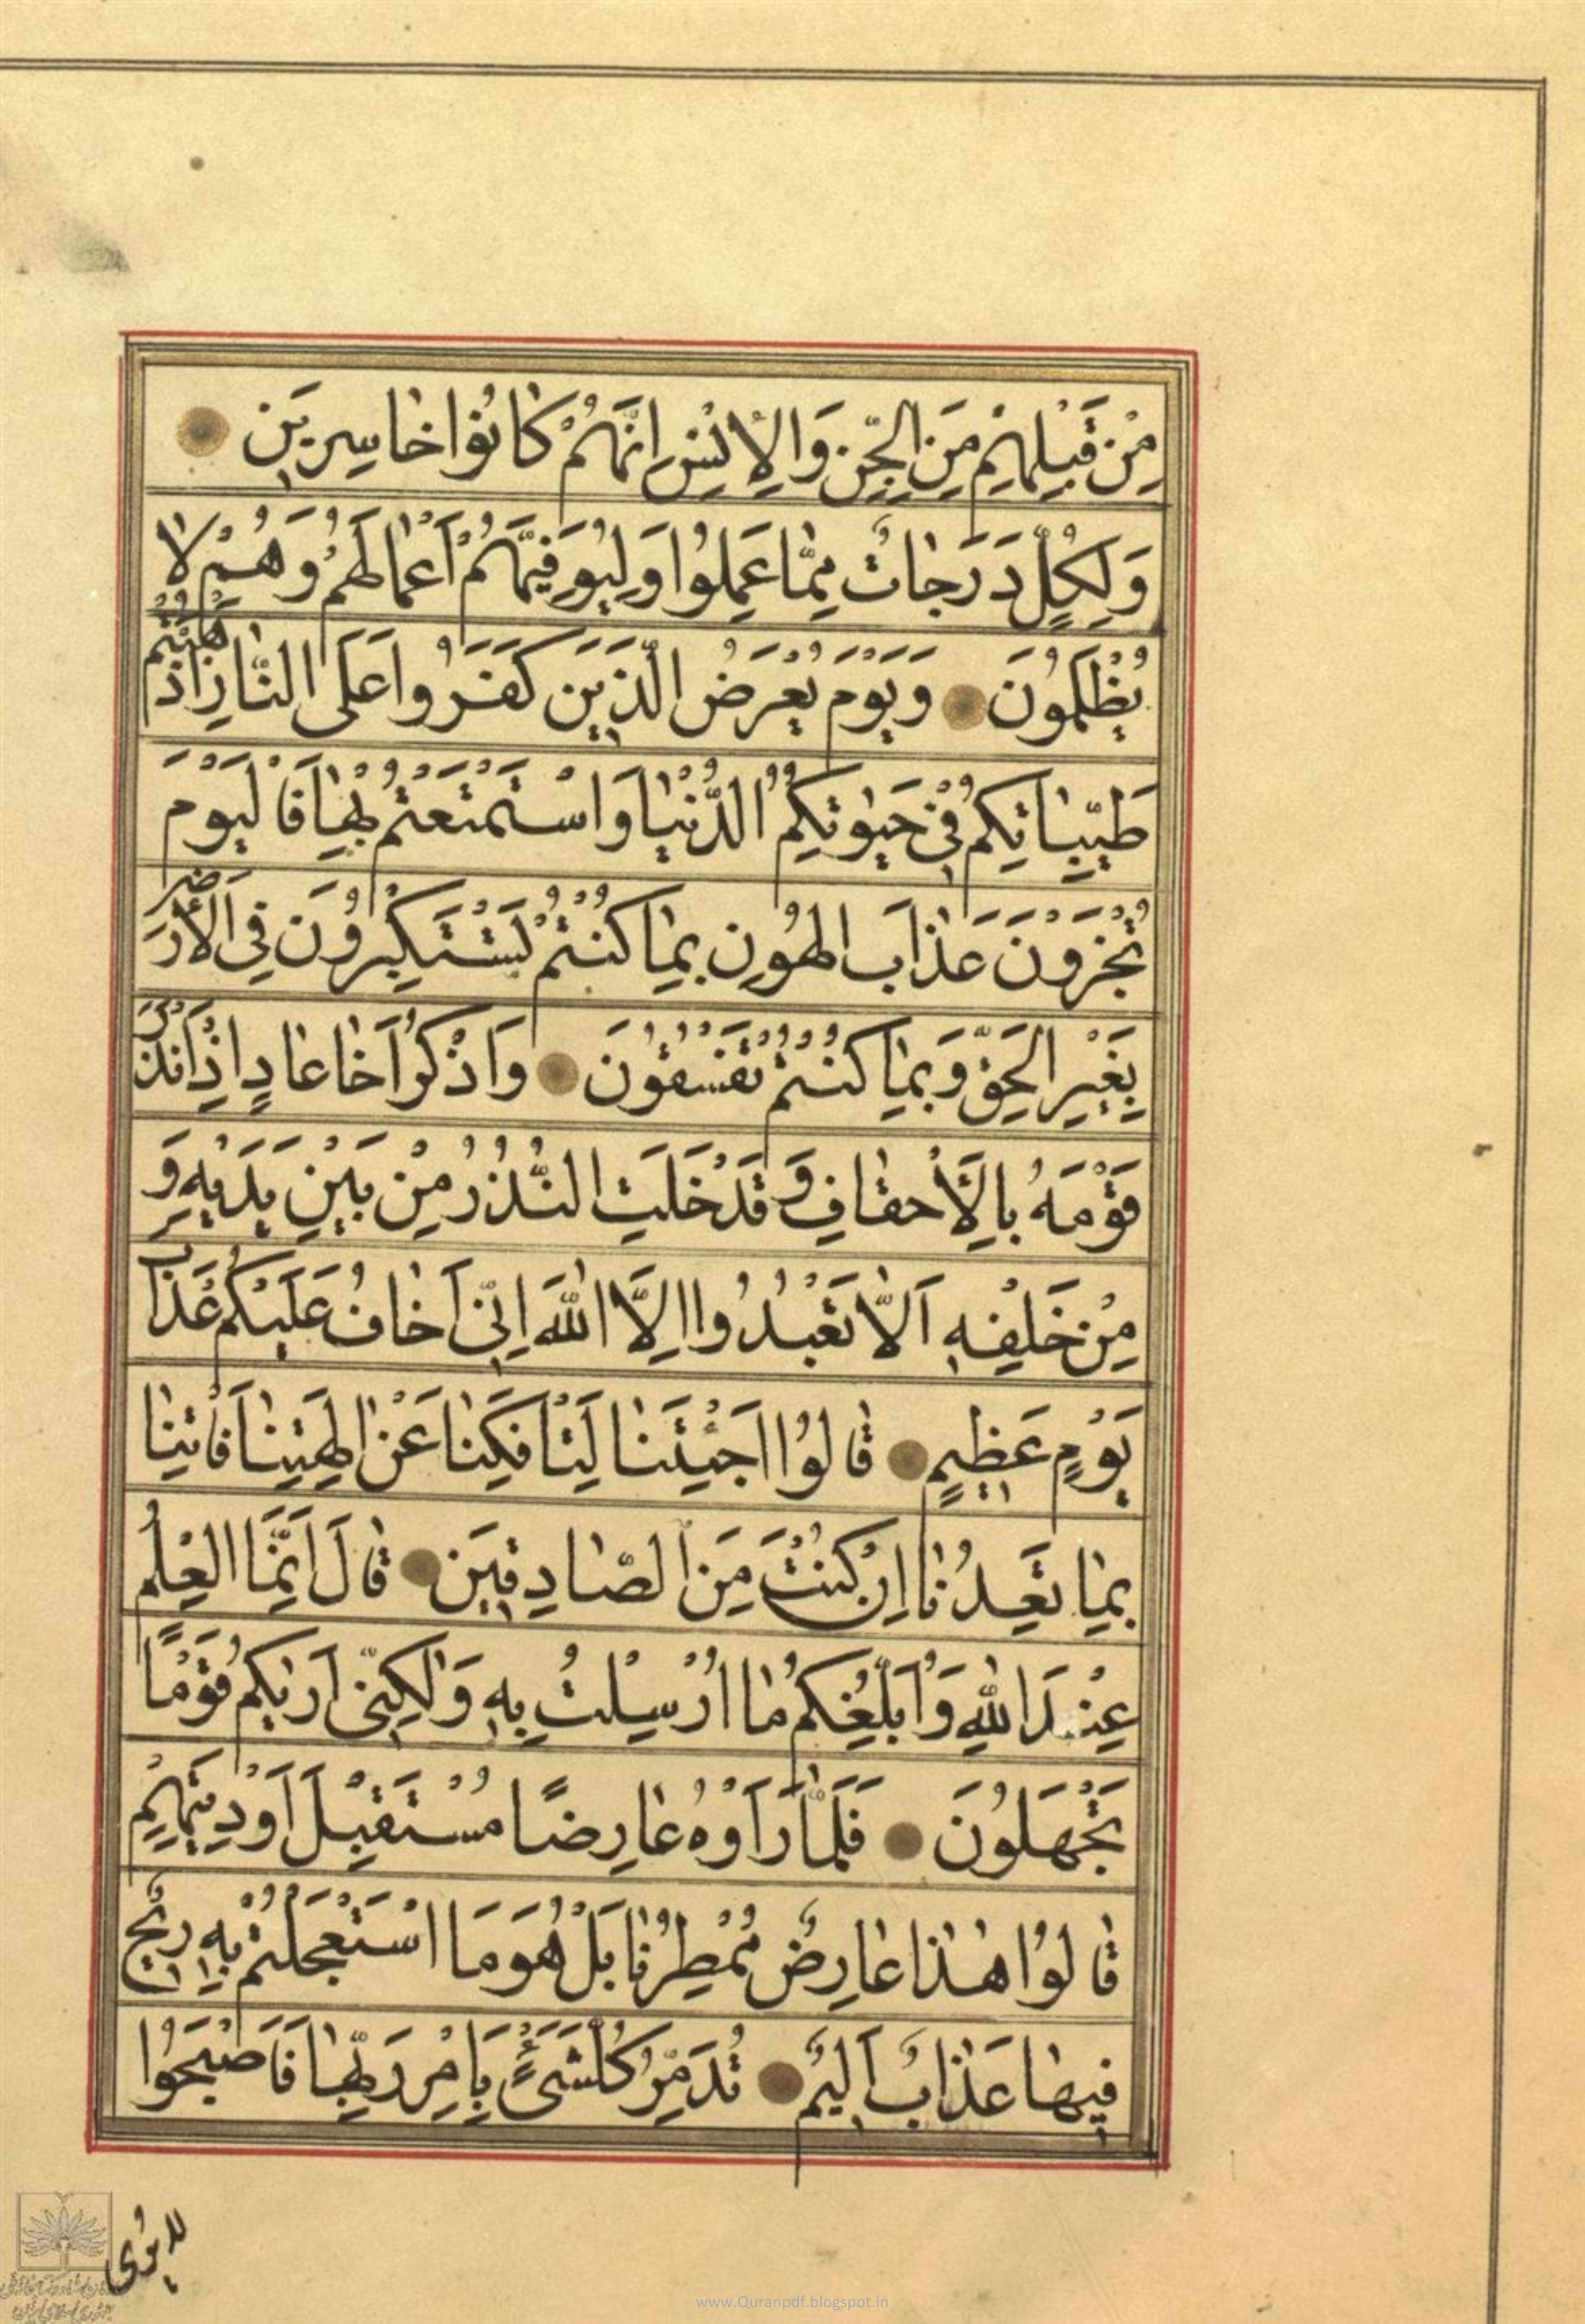 مِنْ قَبْلِهِمْ مِنَ الْجِنِّ وَالْإِنْسِ اِنَّهُمْ كٰانُوا خٰاسِرِيَن
وَلِكُلٍّ دَرَجٰاتٌ مِمّٰا عَمِلُوا وَلِيُوَفِّيَهُمْ اَعْمٰالَهُمْ وَهُمْ لٰا
يُظْلَمُونَ وَيَوْمَ يُعْرَضُ الَّذِيَن كَفَرُوا عَلَى النّٰارِ اَذْهَبْتُمْ
طَيِّبٰاتِكُمْ فِى حَيٰوتِكُمُ الدُّنْيٰا وَاسْتَمْتَعْتُمْ بِهٰا فَالْيَوْمَ
تُجْزَوْنَ عَذٰابَ الْهُونِ بِمٰا كُنْتُمْ تَسْتَكْبِرُونَ فِى الْاَرْضِ
بِغَيْرِ الْحَقِّ وَبِمٰا كُنْتُمْ تَفْسُقُونَ وَاذْكُرْ اَخٰا عٰادٍ اِذْ اَنْذَرَ
قَوْمَهُ بِالْاَحْقٰافِ وَقَدْ خَلَتِ النُّذُرُ مِنْ بَيْنِ يَدَيْهِ وَ
مِنْ خَلْفِهِ اَلّٰا تَعْبُدُوا اِلَّا اللّٰهَ اِنِّى اَخٰافُ عَلَيْكُمْ عَذٰابَ
يَوْمٍ عَظِيمٍ قٰالُوا اَجِئْتَنٰا لِتَأْفِكَنٰا عَنْ اٰلِهَتِنٰا فَأْتِنٰا
بِمٰا تَعِدُنٰا اِنْ كُنْتَ مِنَ الصّٰادِقِيَن قٰالَ اِنَّمَا الْعِلْمُ
عِنْدَ اللّٰهِ وَاُبَلِّغُكُمْ مٰا اُرْسِلْتُ بِهِ وَلٰكِنِّى اَرٰيكُمْ قَوْمًا
تَجْهَلُونَ فَلَمّٰا رَاَوْهُ عٰارِضًا مُسْتَقْبِلَ اَوْدِيَتِهِمْ
قٰالُوا هٰذٰا عٰارِضٌ مُمْطِرُنٰا بَلْ هُوَ مَا اسْتَعْجَلْتُمْ بِهِ رِيحٌ
فِيهٰا عَذٰابٌ اَلِيمٌ تُدَمِّرُ كُلَّ شَىْءٍ بِاَمْرِ رَبِّهٰا فَاَصْبَحُوا
لا يُرٰى
www.Quranpdf.blogspot.in